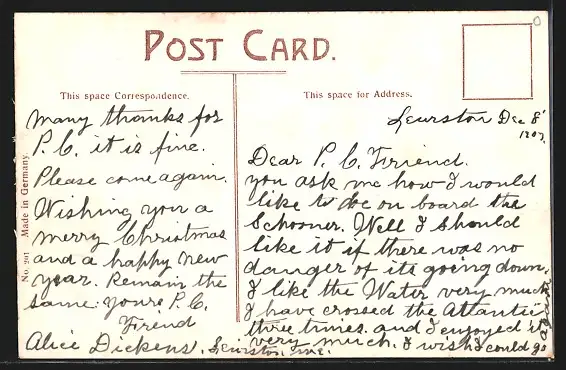 POST CARD.
This space Correspondence.
This space for Address.
No. 291 Made in Germany
Lewiston Dec 8'
1907.
Dear P. C. Friend.
you ask me how I would
like to be on board the
Schooner. Well I should
like it if there was no
danger of its going down.
I like the Water very much
I have crossed the Atlantic
three times. and I enjoyed it
very much. I wish I could go
again
many thanks for
P. C. it is fine.
Please come again.
Wishing you a
merry Christmas
and a happy new
year. Remain the
same. Youre P. C.
Friend
Alice Dickens. Lewiston, me.